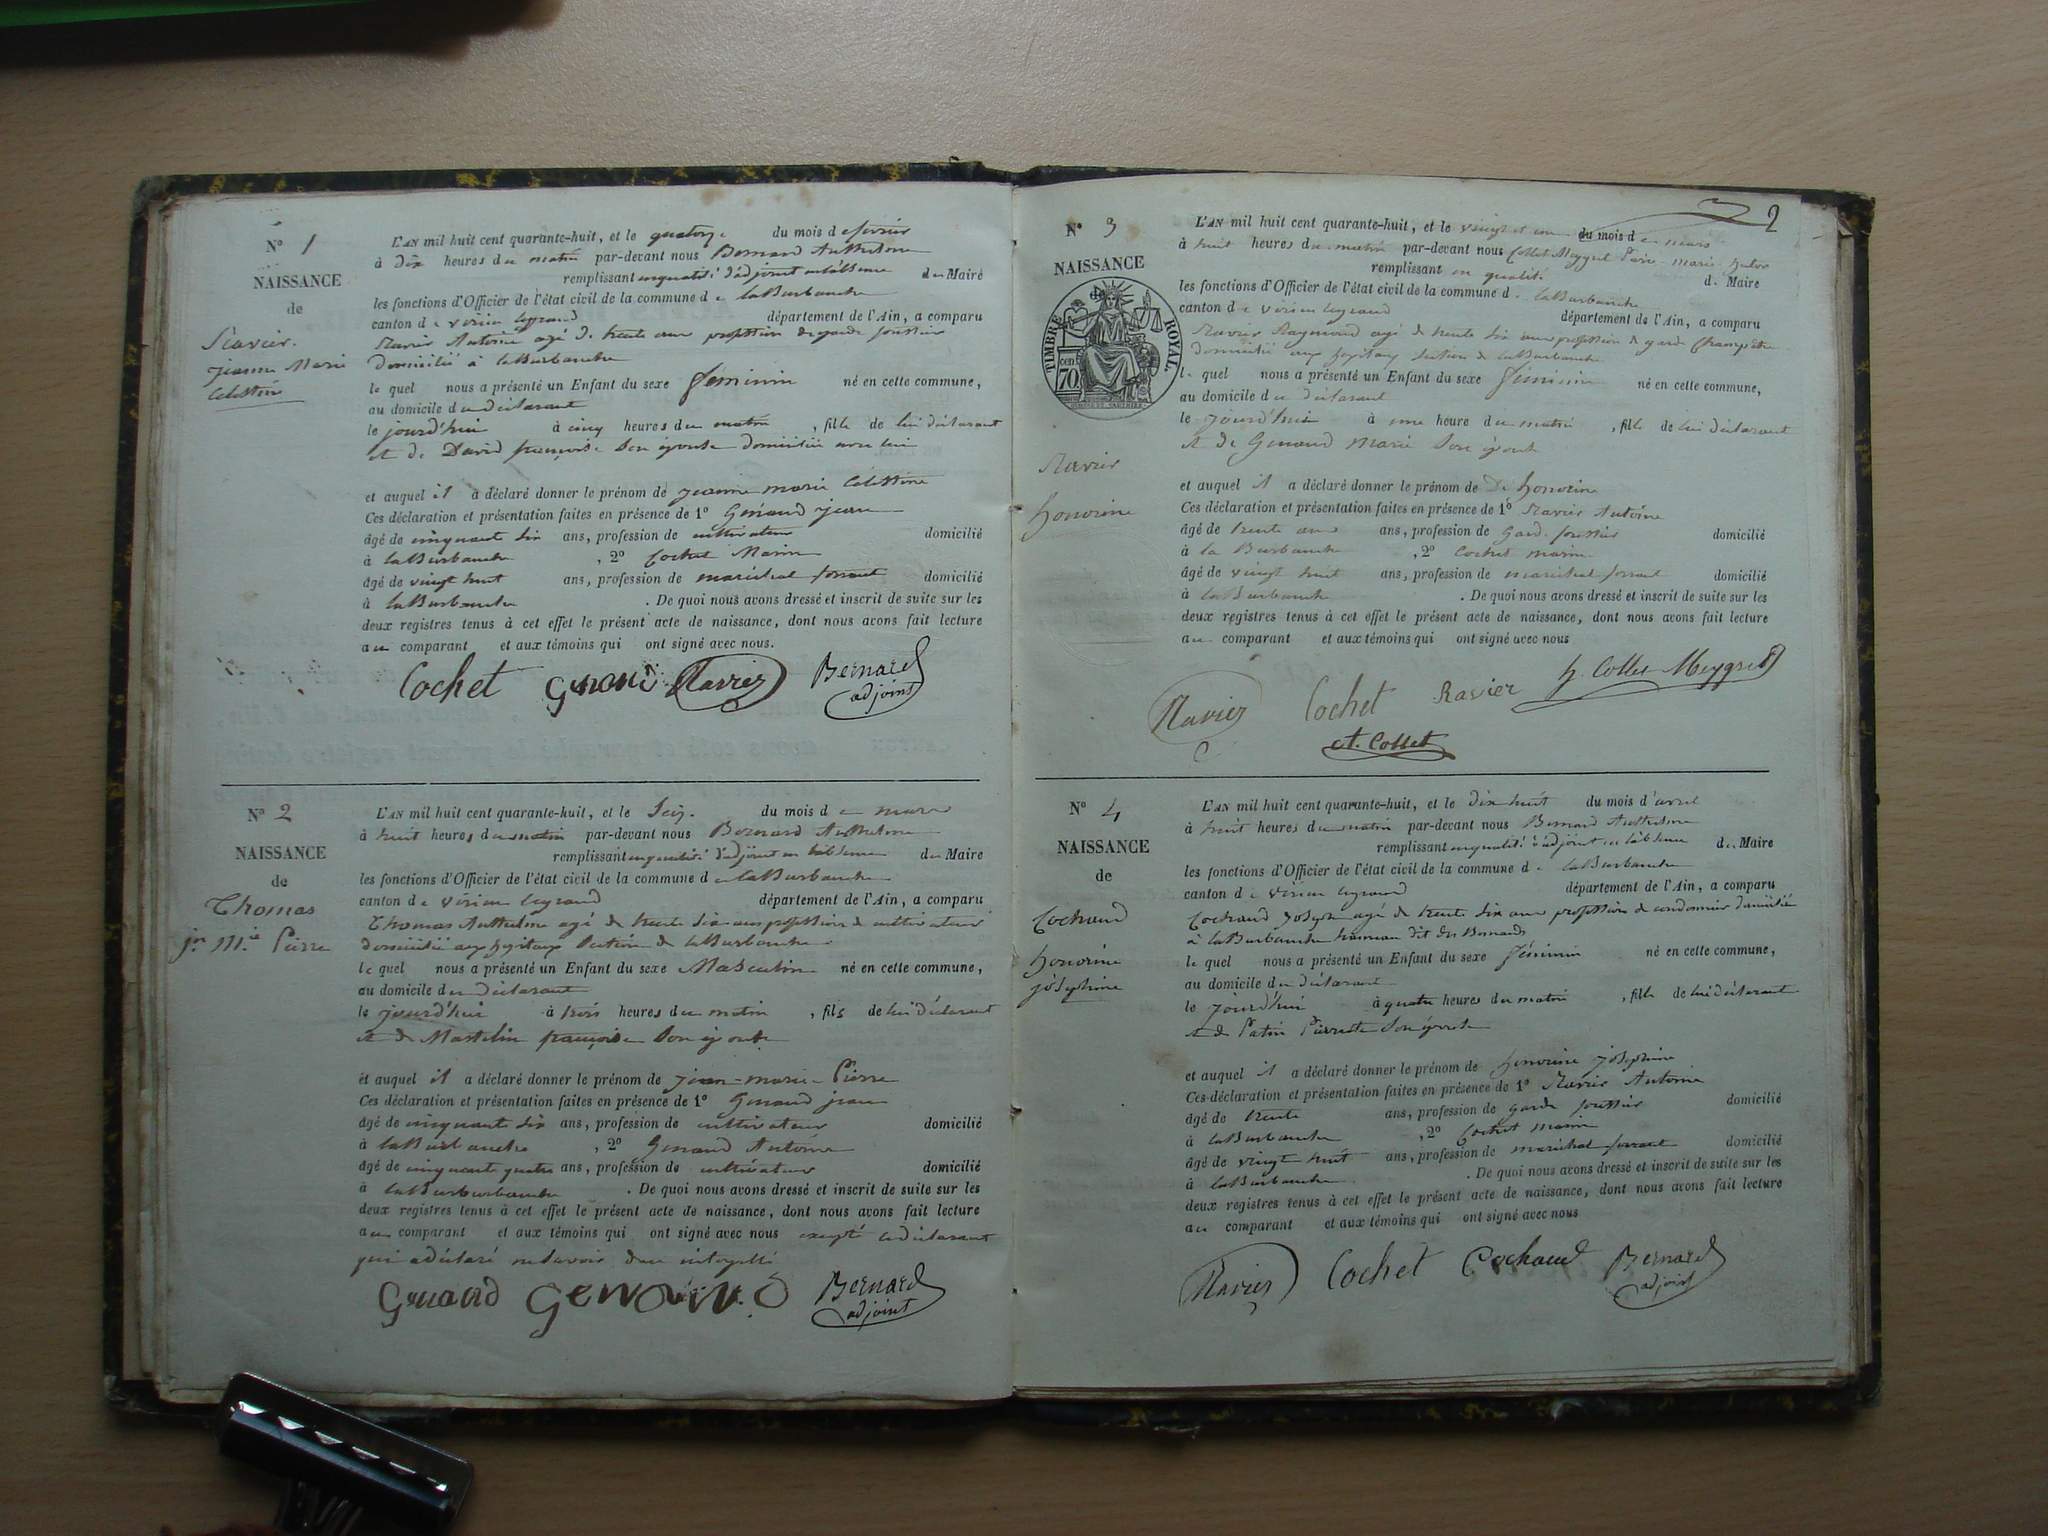 N° 1
NAISSANCE
de
Ravier
jeanne Marie
Celestine
L'AN mil huit cent quarante-huit, et le quatorze du mois de fevrier
à Dix heures du matin par-devant nous Bernard Anthelme
remplissant en qualité d'adjoint en l'absence du Maire
les fonctions d'Officier de l'état civil de la commune de la Burbanche
canton de virieu legrand département de l'Ain, a comparu
Ravier Antoine agé de trente ans profession de garde foretier
domicilié à la Burbanche
le quel nous a présenté un Enfant du sexe féminin né en cette commune,
au domicile du déclarant
le jourd'hui à cinq heures du matin, fille de lui déclarant
et de David françoise son épouse domiciliée avec lui
et auquel il a déclaré donner le prénom de jeanne marie Célestine
Ces déclaration et présentation faites en présence de 1° Genaud jean
âgé de cinquante six ans, profession de cultivateur domicilié
à la Burbanche, 2° Cochet Marin
âgé de vingt huit ans, profession de maréchal ferrant domicilié
à la Burbanche. De quoi nous avons dressé et inscrit de suite sur les
deux registres tenus à cet effet le présent acte de naissance, dont nous avons fait lecture
au comparant et aux témoins qui ont signé avec nous.
Cochet Genaud Ravier Bernard
adjoint
N° 2
NAISSANCE
de
Thomas
jn Mie Pierre
L'AN mil huit cent quarante-huit, et le Seize du mois de mars
à huit heures du matin par-devant nous Bernard Anthelme
remplissant en qualité d'adjoint en l'absence du Maire
les fonctions d'Officier de l'état civil de la commune de la Burbanche
canton de virieu legrand département de l'Ain, a comparu
Thomas Anthelme agé de trente six ans profession de cultivateur
domicilié aux hopitaux section de la Burbanche
le quel nous a présenté un Enfant du sexe Masculin né en cette commune,
au domicile du déclarant
le jourd'hui à trois heures du matin, fils de lui déclarant
et de Mastelin françoise son épouse
et auquel il a déclaré donner le prénom de jean-marie-Pierre
Ces déclaration et présentation faites en présence de 1° Genaud jean
âgé de cinquante six ans, profession de cultivateur domicilié
à la Burbanche, 2° Genaud Antoine
âgé de cinquante quatre ans, profession de cultivateur domicilié
à la Burburbanche. De quoi nous avons dressé et inscrit de suite sur les
deux registres tenus à cet effet le présent acte de naissance, dont nous avons fait lecture
au comparant et aux témoins qui ont signé avec nous excepté le déclarant
qui a déclaré ne savoir
Genaud Genaud Bernard
adjoint
2
N° 3
NAISSANCE
de
TIMBRE ROYAL
70
Ravier
honorine
L'AN mil huit cent quarante-huit, et le vingt et un du mois de mars
à huit heures du matin par-devant nous Collet-Meygret Pierre marie
remplissant en qualité de Maire
les fonctions d'Officier de l'état civil de la commune de la Burbanche
canton de virieu legrand département de l'Ain, a comparu
Ravier Raymond agé de trente six ans profession de garde champêtre
domicilié aux hopitaux section de la Burbanche
le quel nous a présenté un Enfant du sexe féminin né en cette commune,
au domicile du déclarant
le jourd'hui à une heure du matin, fille de lui déclarant
et de Genaud Marie son épouse
et auquel il a déclaré donner le prénom de De honorine
Ces déclaration et présentation faites en présence de 1° Ravier Antoine
âgé de trente ans ans, profession de garde foretier domicilié
à la Burbanche, 2° Cochet marin
âgé de vingt huit ans, profession de maréchal ferrant domicilié
à la Burbanche. De quoi nous avons dressé et inscrit de suite sur les
deux registres tenus à cet effet le présent acte de naissance, dont nous avons fait lecture
au comparant et aux témoins qui ont signé avec nous
Ravier Cochet Ravier h. Collet-Meygret
A. Collet
N° 4
NAISSANCE
de
Cochaud
honorine
joséphine
L'AN mil huit cent quarante-huit, et le dix huit du mois d'avril
à huit heures du matin par-devant nous Bernard Anthelme
remplissant en qualité d'adjoint en l'absence du Maire
les fonctions d'Officier de l'état civil de la commune de la Burbanche
canton de virieu legrand département de l'Ain, a comparu
Cochaud Joseph agé de trente six ans profession de cordonnier domicilié
à la Burbanche hameau dit des Bernards
le quel nous a présenté un Enfant du sexe féminin né en cette commune,
au domicile du déclarant
le jourd'hui à quatre heures du matin, fille de lui déclarant
et de Patin Pierrette son épouse
et auquel il a déclaré donner le prénom de honorine joséphine
Ces déclaration et présentation faites en présence de 1° Ravier Antoine
âgé de trente ans, profession de garde foretier domicilié
à la Burbanche, 2° Cochet marin
âgé de vingt huit ans, profession de maréchal ferrant domicilié
à la Burbanche. De quoi nous avons dressé et inscrit de suite sur les
deux registres tenus à cet effet le présent acte de naissance, dont nous avons fait lecture
au comparant et aux témoins qui ont signé avec nous
Ravier Cochet Cochaud Bernard
adjoint